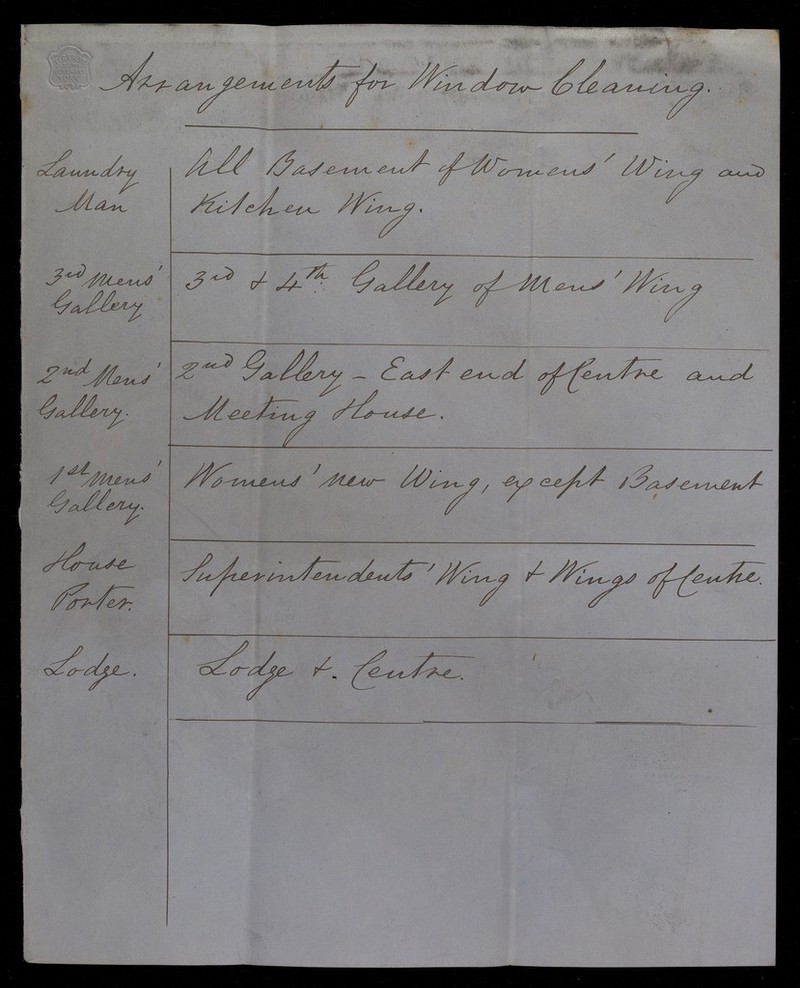 Arrangements for Window Cleaning.
Laundry Man
All Basement of Womens' Wing and
Kitchen Wing.
3rd Mens' Gallery
3rd & 4th Gallery of Mens' Wing
2nd Mens' Gallery.
2nd Gallery - East end of Centre and
Meeting House.
1st Mens' Gallery.
Womens' new Wing, except Basement
House Porter.
Superintendents' Wing & Wings of Centre.
Lodge.
Lodge &. Centre.